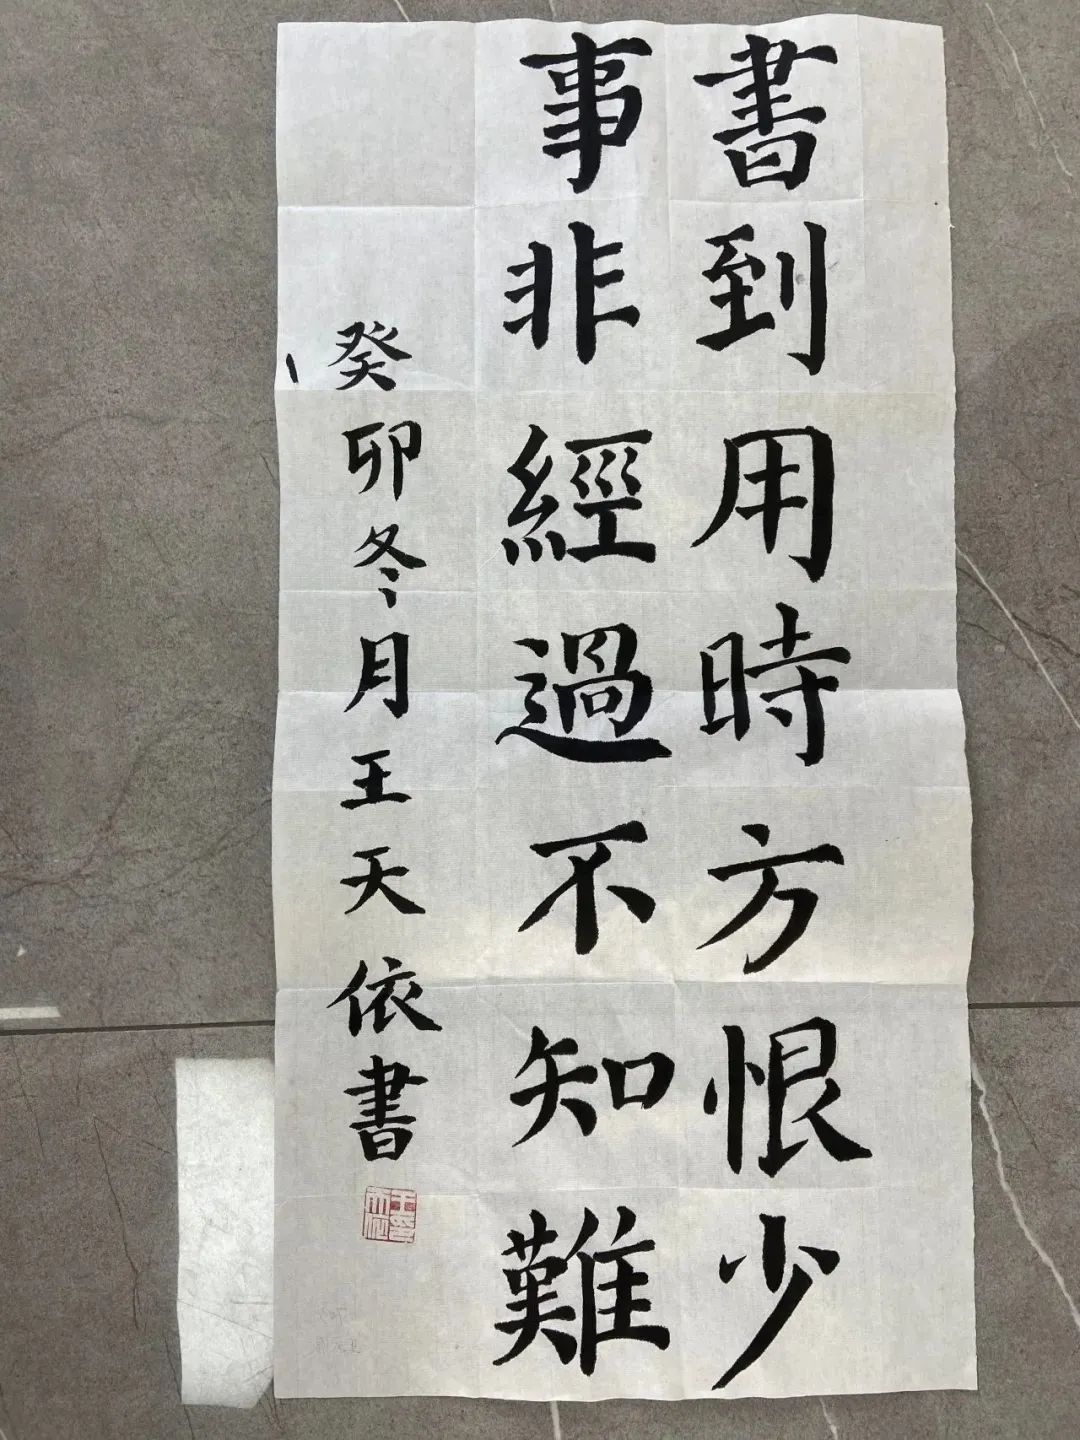 書到用時方恨少
事非經過不知難
癸卯冬月王天依書